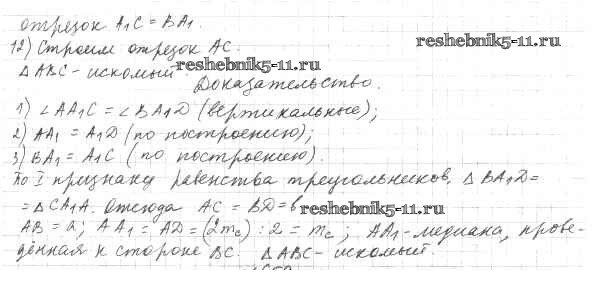 отрезок A₁C = BA₁.
12) Строим отрезок AC.
reshebnik5-11.ru
△ABC - искомый
reshebnik5-11.ru
Доказательство.
1) ∠AA₁C = ∠BA₁D (вертикальные);
2) AA₁ = A₁D (по построению);
3) BA₁ = A₁C (по построению).
По I признаку равенства треугольников, △BA₁D =
= △CA₁A. Отсюда AC = BD = b
reshebnik5-11.ru
AB = a; AA₁ = AD = (2mc) : 2 = mc; AA₁ - медиана, прове-
дённая к стороне BC. △ABC - искомый.